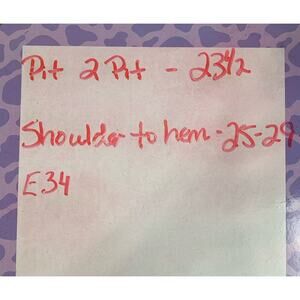 Pit 2 Pit - 23 1/2
Shoulder to hem - 25-29
E34